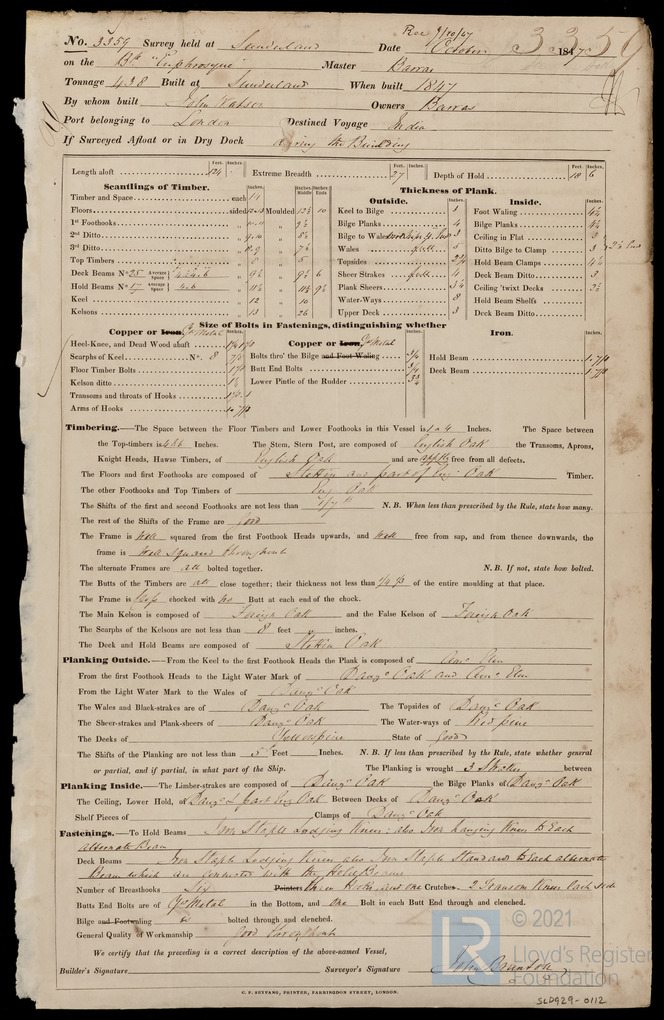 Rec 9/10/47
No. 3359 Survey held at Sunderland Date October 1847
3359
on the Bk "Euphrosyne" Master Barras
Tonnage 438 Built at Sunderland When built 1847
By whom built John Watson Owners Barras
Port belonging to London Destined Voyage India
If Surveyed Afloat or in Dry Dock during the Building
Feet. Inches. Feet. Inches. Feet. Inches.
Length aloft 124 Extreme Breadth 27 Depth of Hold 18 6
Scantlings of Timber.
Timber and Space each
Floors sided Moulded 10
1st Foothooks
2nd Ditto
3rd Ditto
Top Timbers 5
Deck Beams No 25 Average Space
Hold Beams No 17 Average Space
Keel 12 10
Kelsons 13 26
Thickness of Plank.
Outside.
Keel to Bilge
Bilge Planks 4
Bilge to Wales 3
Wales full 5
Topsides
Sheer Strakes full 4
Plank Sheers
Water-Ways 8
Upper Deck 3
Inside.
Foot Waling 4½
Bilge Planks 4½
Ceiling in Flat 3
Ditto Bilge to Clamp 3
Hold Beam Clamps 4½
Deck Beam Ditto 3
Ceiling 'twixt Decks 2½
Hold Beam Shelfs
Deck Beam Ditto
Size of Bolts in Fastenings, distinguishing whether
Copper or Iron. Yw Metal
Heel-Knee, and Dead Wood abaft
Scarphs of Keel No. 8
Floor Timber Bolts
Kelson ditto
Transoms and throats of Hooks
Arms of Hooks
Copper or Iron. Yw Metal
Bolts thro' the Bilge and Foot Waling
Butt End Bolts
Lower Pintle of the Rudder
Iron.
Hold Beam
Deck Beam
Timbering.—The Space between the Floor Timbers and Lower Foothooks in this Vessel is 1 to 4 Inches. The Space between
the Top-timbers is Inches. The Stem, Stern Post, are composed of English Oak the Transoms, Aprons,
Knight Heads, Hawse Timbers, of English Oak and are free from all defects.
The Floors and first Foothooks are composed of Stettin and part of Eng. Oak Timber.
The other Foothooks and Top Timbers of Eng Oak
The Shifts of the first and second Foothooks are not less than N. B. When less than prescribed by the Rule, state how many.
The rest of the Shifts of the Frame are good
The Frame is well squared from the first Foothook Heads upwards, and well free from sap, and from thence downwards, the
frame is well squared throughout
The alternate Frames are all bolted together. N. B. If not, state how bolted.
The Butts of the Timbers are all close together; their thickness not less than of the entire moulding at that place.
The Frame is chocked with no Butt at each end of the chock.
The Main Kelson is composed of Foreign Oak and the False Kelson of Foreign Oak
The Scarphs of the Kelsons are not less than 8 feet " inches.
The Deck and Hold Beams are composed of Stettin Oak
Planking Outside.—From the Keel to the first Foothook Heads the Plank is composed of Amn Elm
From the first Foothook Heads to the Light Water Mark of Dangc Oak and Amn Elm
From the Light Water Mark to the Wales of Dangc Oak
The Wales and Black-strakes are of Dangc Oak The Topsides of Dangc Oak
The Sheer-strakes and Plank-sheers of Dangc Oak The Water-ways of Red pine
The Decks of Yellow pine State of good
The Shifts of the Planking are not less than 5 Feet Inches. N. B. If less than prescribed by the Rule, state whether general
or partial, and if partial, in what part of the Ship. The Planking is wrought 3 Strakes between
Planking Inside.—The Limber-strakes are composed of Dangc Oak the Bilge Planks of Dangc Oak
The Ceiling, Lower Hold, of Dangc & part Eng Oak Between Decks of Dangc Oak
Shelf Pieces of / Clamps of Dangc Oak
Fastenings.—To Hold Beams Iron Staple Lodging Knees; also Iron hanging Knees to Each
alternate Beam
Deck Beams Iron Staple Lodging Knees also Iron Staple Standard to Each alternate
Beam which are connected with the Hold Beams
Number of Breasthooks Six Pointers Three Hooks and one Crutches. 2 Transom Knees Each side
Butts End Bolts are of Yw Metal in the Bottom, and one Bolt in each Butt End through and clenched.
Bilge and Footwaling is bolted through and clenched.
General Quality of Workmanship good throughout
We certify that the preceding is a correct description of the above-named Vessel,
Builder's Signature Surveyor's Signature John Brunton
C. F. SEYFANG, PRINTER, FARRINGDON STREET, LONDON.
© 2021
LR
Lloyd's Register
Foundation
SLD929-0112